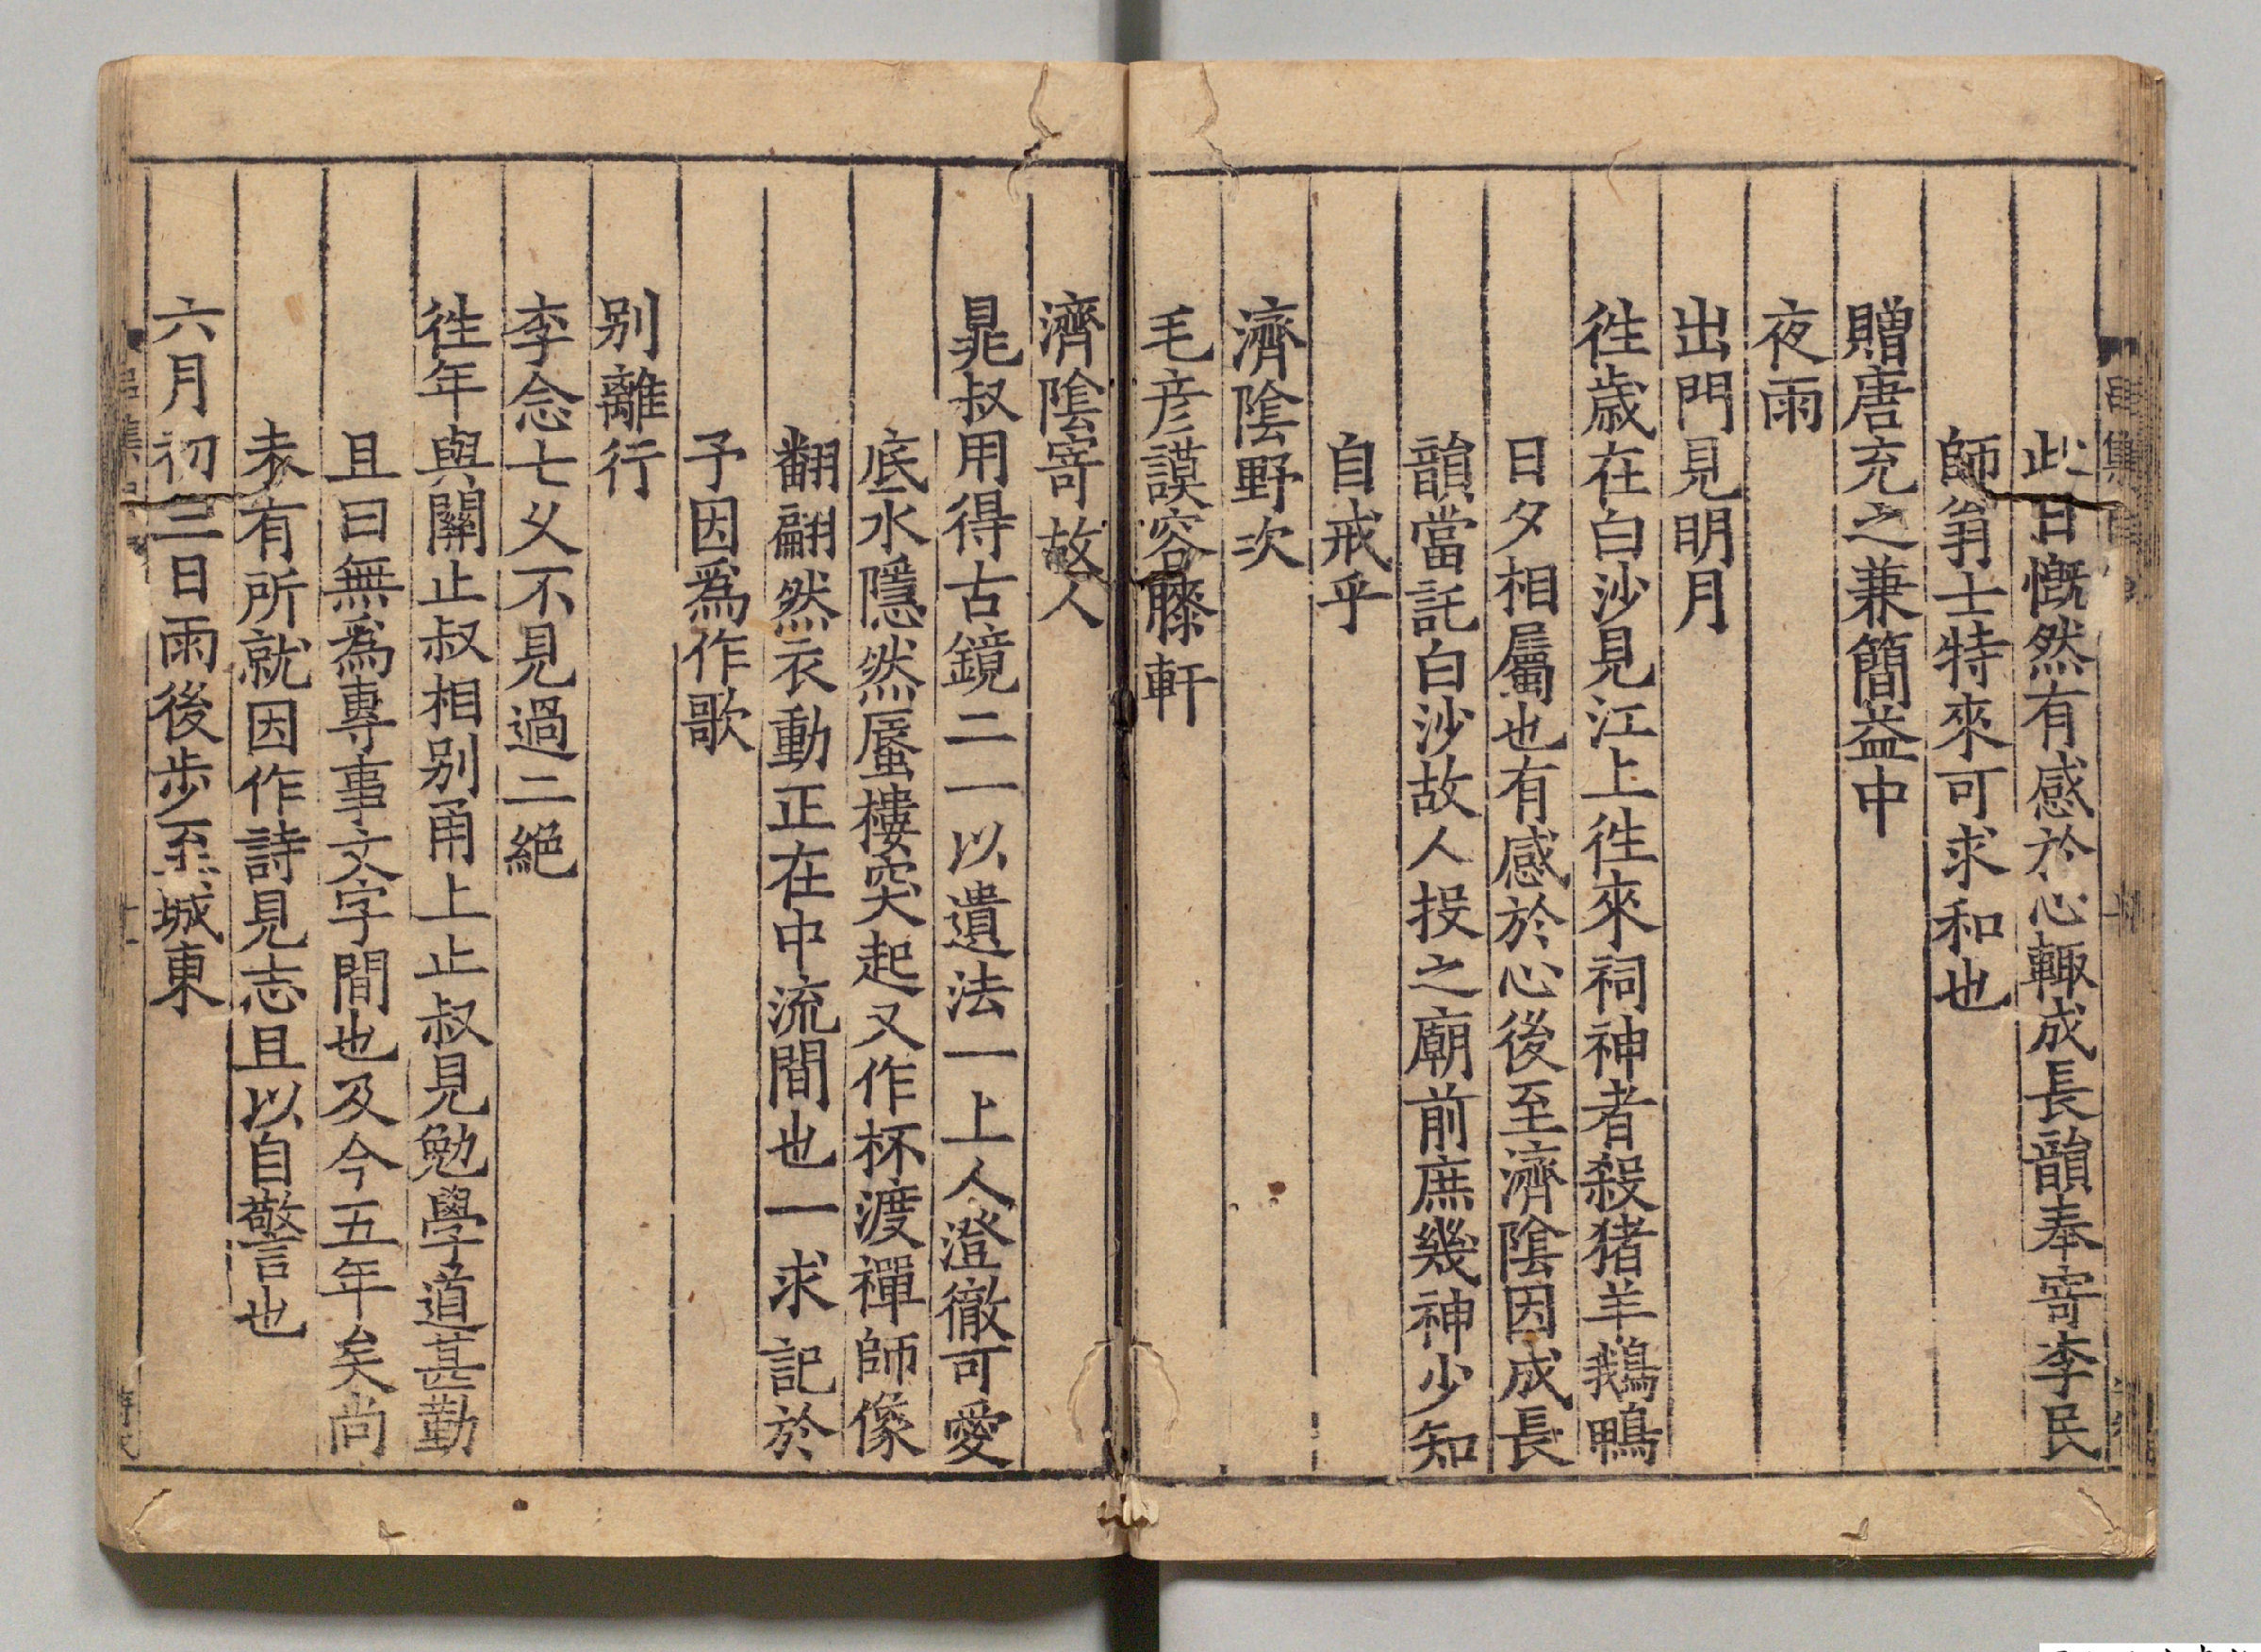 此日慨然有感於心輙成長韻奉寄李民
師翁士特來可求和也
贈唐充之兼簡益中
夜雨
出門見明月
徃歳在白沙見江上徃來祠神者殺猪羊鵝鴨
日夕相屬也有感於心後至濟隂因成長
韻當託白沙故人投之廟前庶幾神少知
自戒乎
濟隂野次
毛彦謨容膝軒
濟隂寄故人
晁叔用得古鏡二一以遺法一上人澄徹可愛
底水隱然蜃樓突起又作杯渡禪師像
翻翩然衣動正在中流間也一求記於
予因爲作歌
别離行
李念七乂不見過二絶
徃年與關止叔相别甬上止叔見勉學道甚勤
且曰無爲專事文字間也及今五年矣尚
未有所就因作詩見志且以自警也
六月初三日雨後步至城東